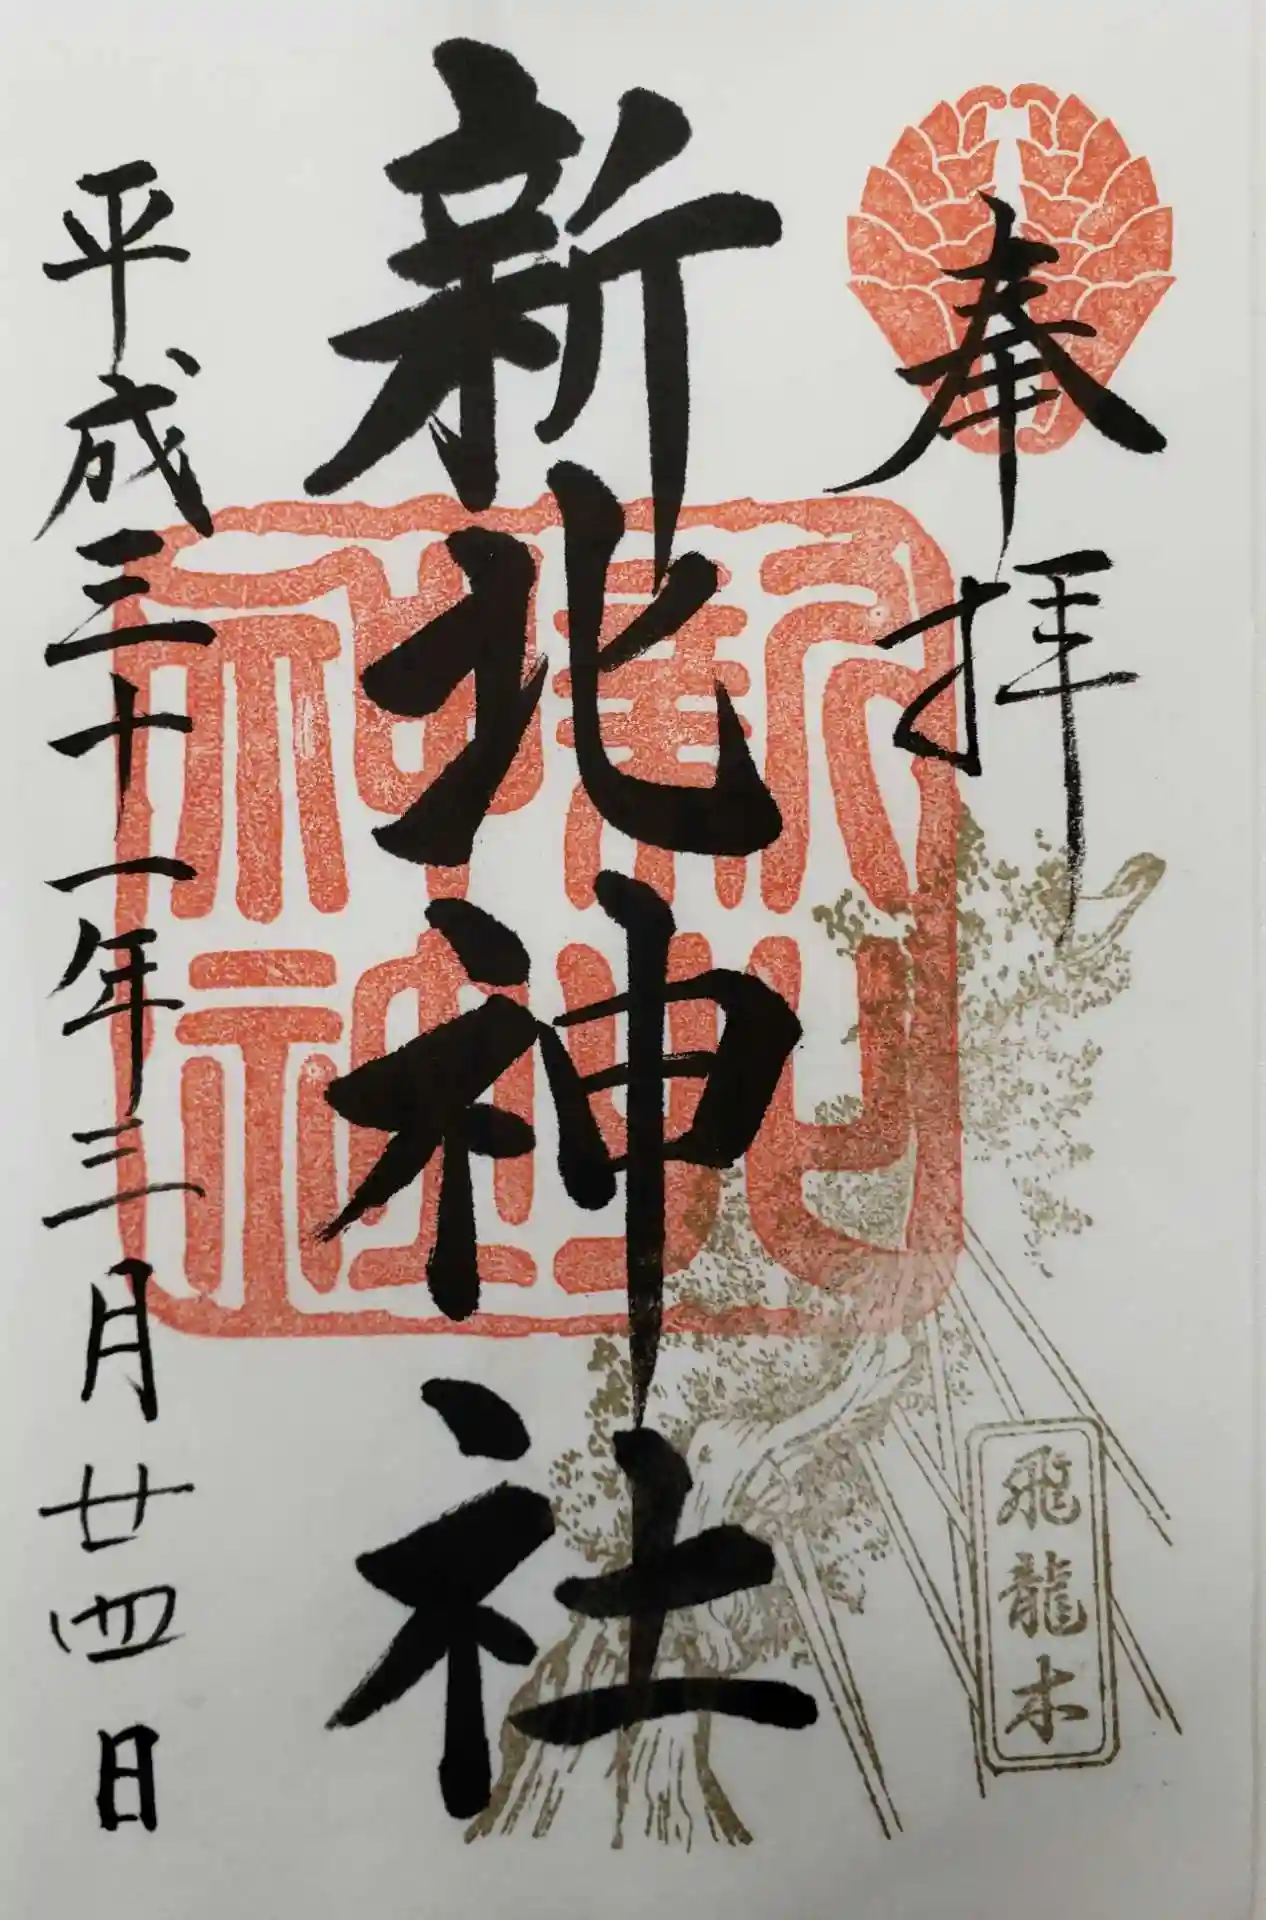 奉拝
新北神社
新北神社
飛龍木
平成三十一年三月廿四日